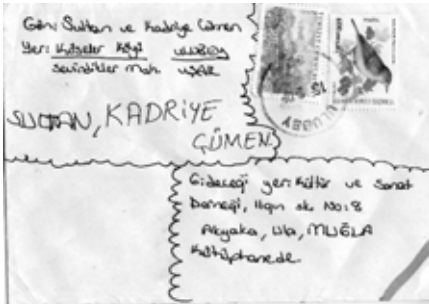 Gön: Sultan ve Kadriye Gümen
Yer: Kışlalar Köyü ULUBEY
Sevindikler Mah. UŞAK
SULTAN, KADRİYE
GÜMEN
ULUBEY
Gideceği yer: Kültür ve Sanat
Derneği, Ilgın sk. No: 8
Akyaka, Ula, MUĞLA
Kütüphanede.